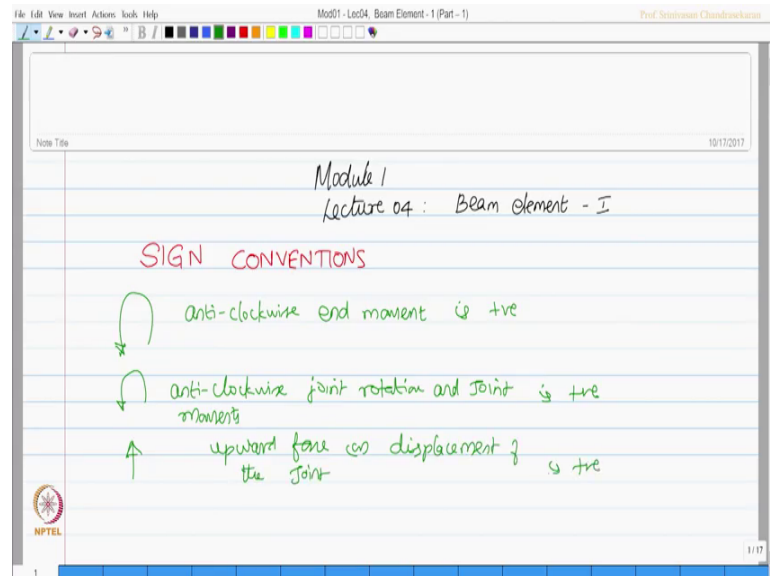 File Edit View Insert Actions Tools Help
Mod01 - Lec04, Beam Element - 1 (Part – 1)
Prof Srinivasan Chandrasekaran
B I
Note Title
10/17/2017
Module 1
Lecture 04 : Beam element - I
SIGN CONVENTIONS
anti-clockwise end moment is +ve
anti-clockwise joint rotation and Joint is +ve
moments
upward force (or) displacement of is +ve
the Joint
NPTEL
1 / 17
1